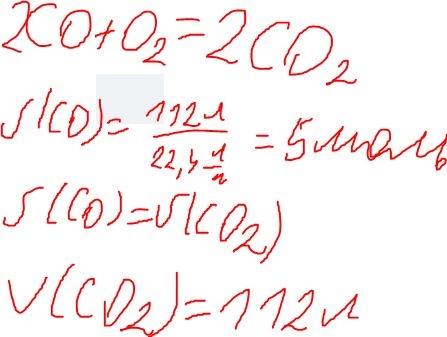 2CO+O₂=2CO₂
ν(CO)=112л/22,4л/м=5моль
ν(CO)=ν(CO₂)
V(CO₂)=112л